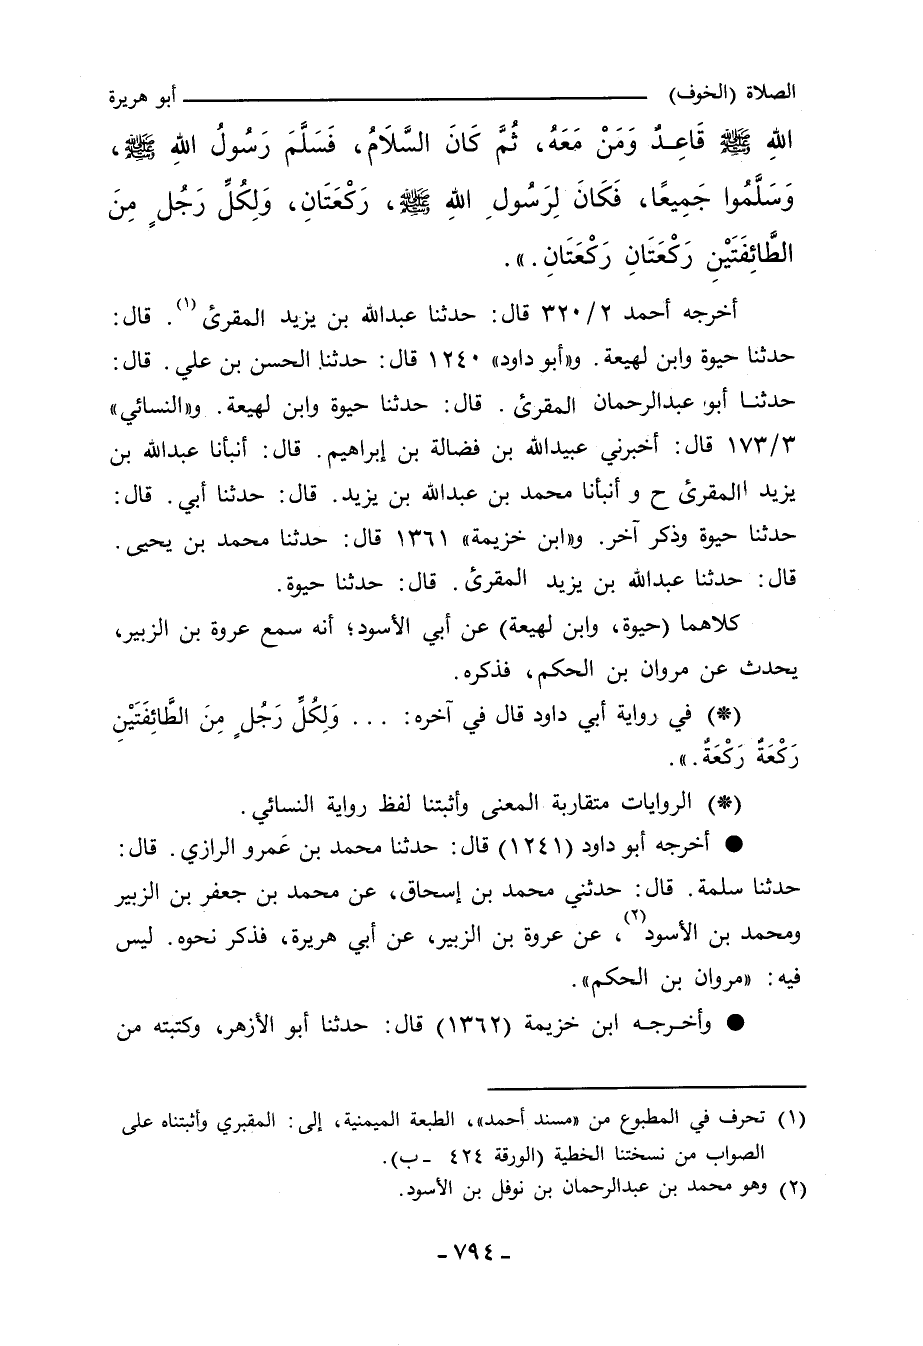 الصلاة (الخوف) ــــــــــــــــ أبو هريرة
اللهِ ﷺ قَاعِدٌ وَمَنْ مَعَهُ، ثُمَّ كَانَ السَّلَامُ، فَسَلَّمَ رَسُولُ اللهِ ﷺ،
وَسَلَّمُوا جَمِيعًا، فَكَانَ لِرَسُولِ اللهِ ﷺ، رَكْعَتَانِ، وَلِكُلِّ رَجُلٍ مِنَ
الطَّائِفَتَيْنِ رَكْعَتَانِ رَكْعَتَانِ.».
أخرجه أحمد ٣٢٠/٢ قال: حدثنا عبدالله بن يزيد المقرئ(١). قال:
حدثنا حيوة وابن لهيعة. و«أبو داود» ١٢٤٠ قال: حدثنا الحسن بن علي. قال:
حدثنا أبو عبدالرحمان المقرئ. قال: حدثنا حيوة وابن لهيعة. و«النسائي»
١٧٣/٣ قال: أخبرني عبيدالله بن فضالة بن إبراهيم. قال: أنبأنا عبدالله بن
يزيد المقرئ ح و أنبأنا محمد بن عبدالله بن يزيد. قال: حدثنا أبي. قال:
حدثنا حيوة وذكر آخر. و«ابن خزيمة» ١٣٦١ قال: حدثنا محمد بن يحيى.
قال: حدثنا عبدالله بن يزيد المقرئ. قال: حدثنا حيوة.
كلاهما (حيوة، وابن لهيعة) عن أبي الأسود؛ أنه سمع عروة بن الزبير،
يحدث عن مروان بن الحكم، فذكره.
(*) في رواية أبي داود قال في آخره: ... وَلِكُلِّ رَجُلٍ مِنَ الطَّائِفَتَيْنِ
رَكْعَةٌ رَكْعَةٌ.».
(*) الروايات متقاربة المعنى وأثبتنا لفظ رواية النسائي.
● أخرجه أبو داود (١٢٤١) قال: حدثنا محمد بن عَمرو الرازي. قال:
حدثنا سلمة. قال: حدثني محمد بن إسحاق، عن محمد بن جعفر بن الزبير
ومحمد بن الأسود(٢)، عن عروة بن الزبير، عن أبي هريرة، فذكر نحوه. ليس
فيه: «مروان بن الحكم».
● وأخرجه ابن خزيمة (١٣٦٢) قال: حدثنا أبو الأزهر، وكتبته من
(١) تحرف في المطبوع من «مسند أحمد»، الطبعة الميمنية، إلى: المقبري وأثبتناه على
الصواب من نسختنا الخطية (الورقة ٤٢٤ - ب).
(٢) وهو محمد بن عبدالرحمان بن نوفل بن الأسود.
- ٧٩٤ -